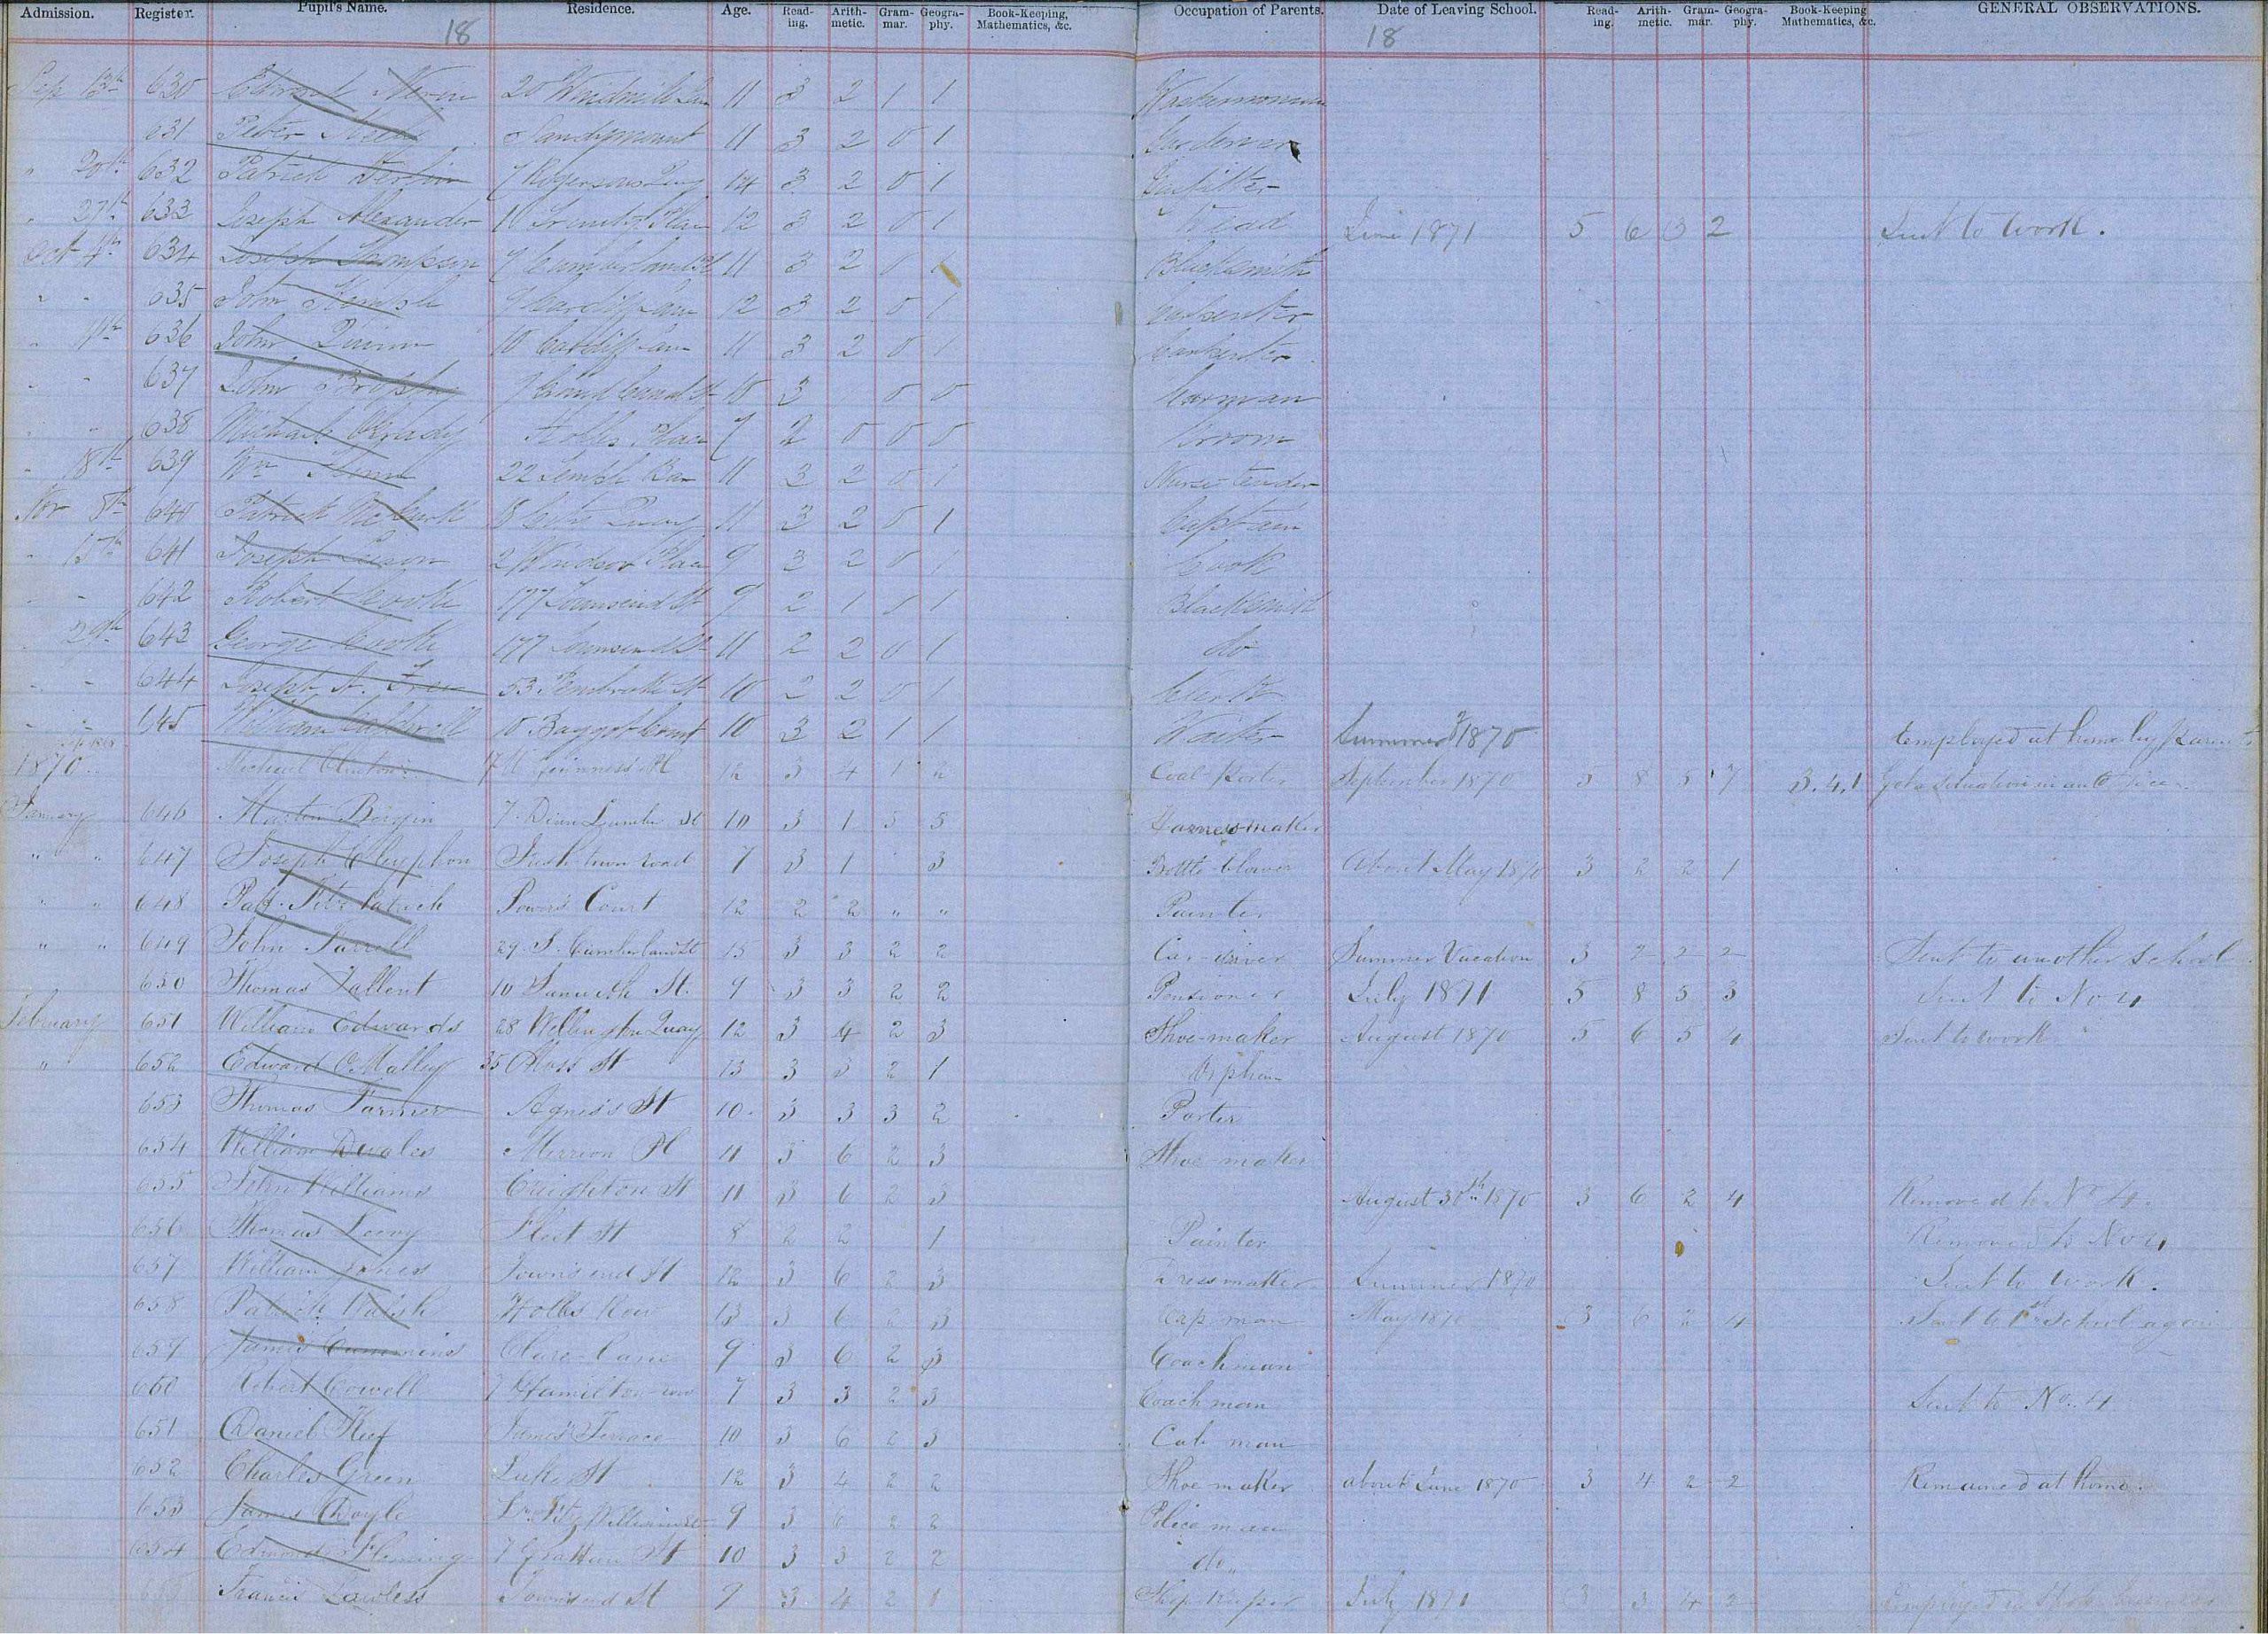 Admission. Register. Pupil's Name. Residence. Age. Read-ing. Arith-metic. Gram-mar. Geogra-phy. Book-Keeping, Mathematics, &c. Occupation of Parents. Date of Leaving School. Read-ing. Arith-metic. Gram-mar. Geogra-phy. Book-Keeping Mathematics, &c. GENERAL OBSERVATIONS.
18 18
Sep 13th 630 Edward 20 Windmill Lane 11 3 2 1 1
631 Peter Sandymount 11 3 2 0 1 Gardener
" 20th 632 Patrick 7 Rogersons Quay 14 3 2 0 1 Gasfitter
" 27th 633 Joseph Alexander 10 Trinity Place 12 3 2 0 1 Dead June 1871 5 6 3 2 Sent to work.
Oct 4th 634 Joseph Thompson 7 Cumberland St 11 3 2 0 1 Blacksmith
" " 635 John 9 Cardiff Lane 12 3 2 0 1 Carpenter
" 11th 636 John Quinn 10 Cardiff Lane 11 3 2 0 1 Carpenter
" " 637 John Brophy 10 3 0 0 Carman
" " 638 Michael O'Grady Holles Place 7 2 0 0 0 Groom
" 18th 639 Wm 22 Temple Bar 11 3 2 0 1 Nurse tender
Nov 8th 640 Patrick 18 City Quay 11 3 2 0 1 Captain
" 15th 641 Joseph 2 Windsor Place 9 3 2 0 1 Cook
" " 642 Robert Cooke 177 Townsend St 9 2 1 0 1 Blacksmith
" 29th 643 George Cooke 177 Townsend St 11 2 2 0 1 do
" " 644 Joseph A. 53 Pembroke St 10 2 2 0 1 Clerk
" " 645 William Caldwell 10 Baggot Court 10 3 2 1 1 Waiter Summer 1870 Employed at home by Parents
1870. Michael Clinton 12 3 4 1 2 Coal-Porter September 1870 5 8 5 7 3.4.1 Got a situation in an Office.
January 646 Martin Bergin 7 Denzille St 10 3 1 3 3 Harness-maker
" " 647 Joseph Irishtown road 7 3 1 3 Bottle-blower About May 1870 3 2 2 1
" " 648 Patk. Fitzpatrick Powers Court 12 2 2 " " Painter
" " 649 John Farrell 29 S. Cumberland St 15 3 3 2 2 Car-driver Summer Vacation 3 2 2 2 Sent to another school
650 Thomas Tallent 10 Sandwith St. 9 3 3 2 2 Pensioner July 1871 5 8 5 3 Sent to No 4
February 651 William Edwards 28 Wellington Quay 12 3 4 2 3 Shoe-maker August 1870 5 6 5 4 Sent to work
" 652 Edward O'Malley 35 Moss St 13 3 3 2 1 Orphan
653 Thomas Farmer Agnes's St 10 3 3 3 2 Porter
654 William Merrion Pl 11 3 6 2 3 Shoe-maker
655 John Williams Creighton St 11 3 6 2 3 August 30th 1870 3 6 2 4 Removed to No 4.
656 Thomas Fleet St 8 2 2 1 Painter Removed to No 4
657 William Jones Townsend St 12 3 6 2 3 Dressmaker Summer 1870 Sent to work.
658 Patrick Walsh Holles Row 13 3 6 2 3 Cap man May 1870 3 6 2 4 Sent to 1st school again
659 James Cummins Clare-Lane 9 3 6 2 3 Coachman
660 Robert Cowell 7 Hamilton-row 7 3 3 2 3 Coachman Sent to No. 4
651 Daniel Keef James's Terrace 10 3 6 2 3 Cab man
652 Charles Green Luke St 12 3 4 2 2 Shoe maker about June 1870 3 4 2 2 Remained at home.
653 James Doyle Lr. Fitz William St 9 3 6 2 2 Police man
654 Edmond Fleming 7 Grattan St 10 3 3 2 2 do.
Francis Lawless Townsend St 9 3 4 2 1 Shop Keeper July 1871 3 3 4 2